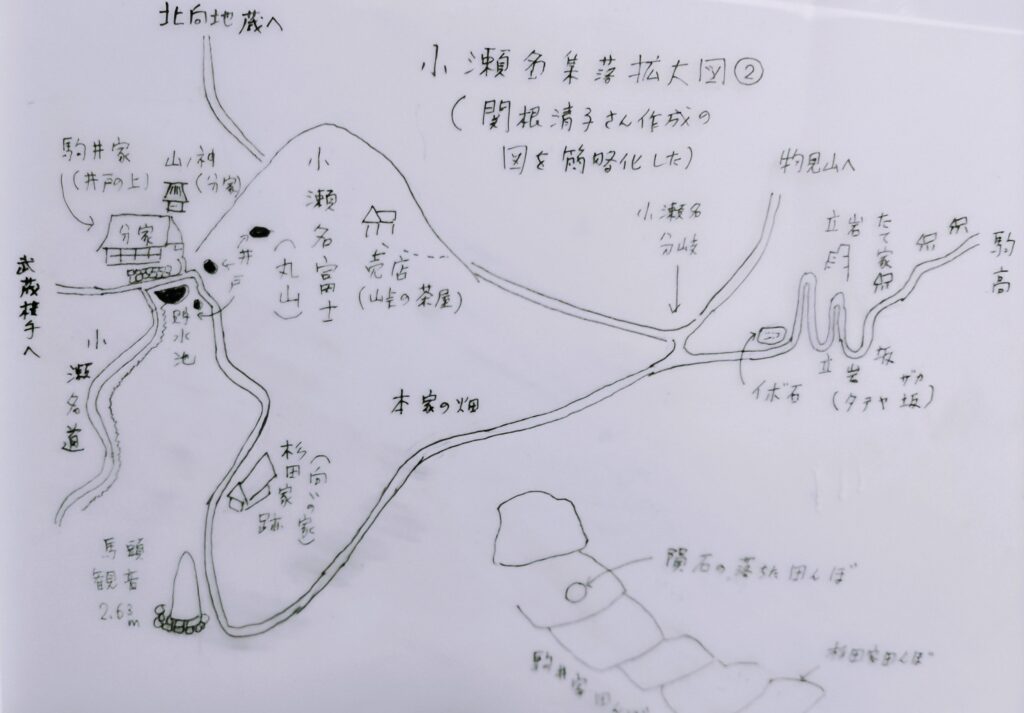 北向地蔵へ
小瀬名集落拡大図②
(関根清子さん作成の
図を簡略化した)
駒井家
(井戸の上)
山ノ神
(分家)
分家
小瀬名富士
(丸山)
井戸
売店
(山峠の茶屋)
物見山へ
小瀬名
分岐
立岩
たて家
沢
沢
沢
駒高
武蔵横手へ
貯水池
小瀬名道
本家の畑
イボ石
立岩坂
(タテヤ坂)
ザカ
杉田家跡
(向いの家)
馬頭
観音
2.63m
隕石の落ちた田んぼ
駒井家田んぼ
杉田家田んぼ